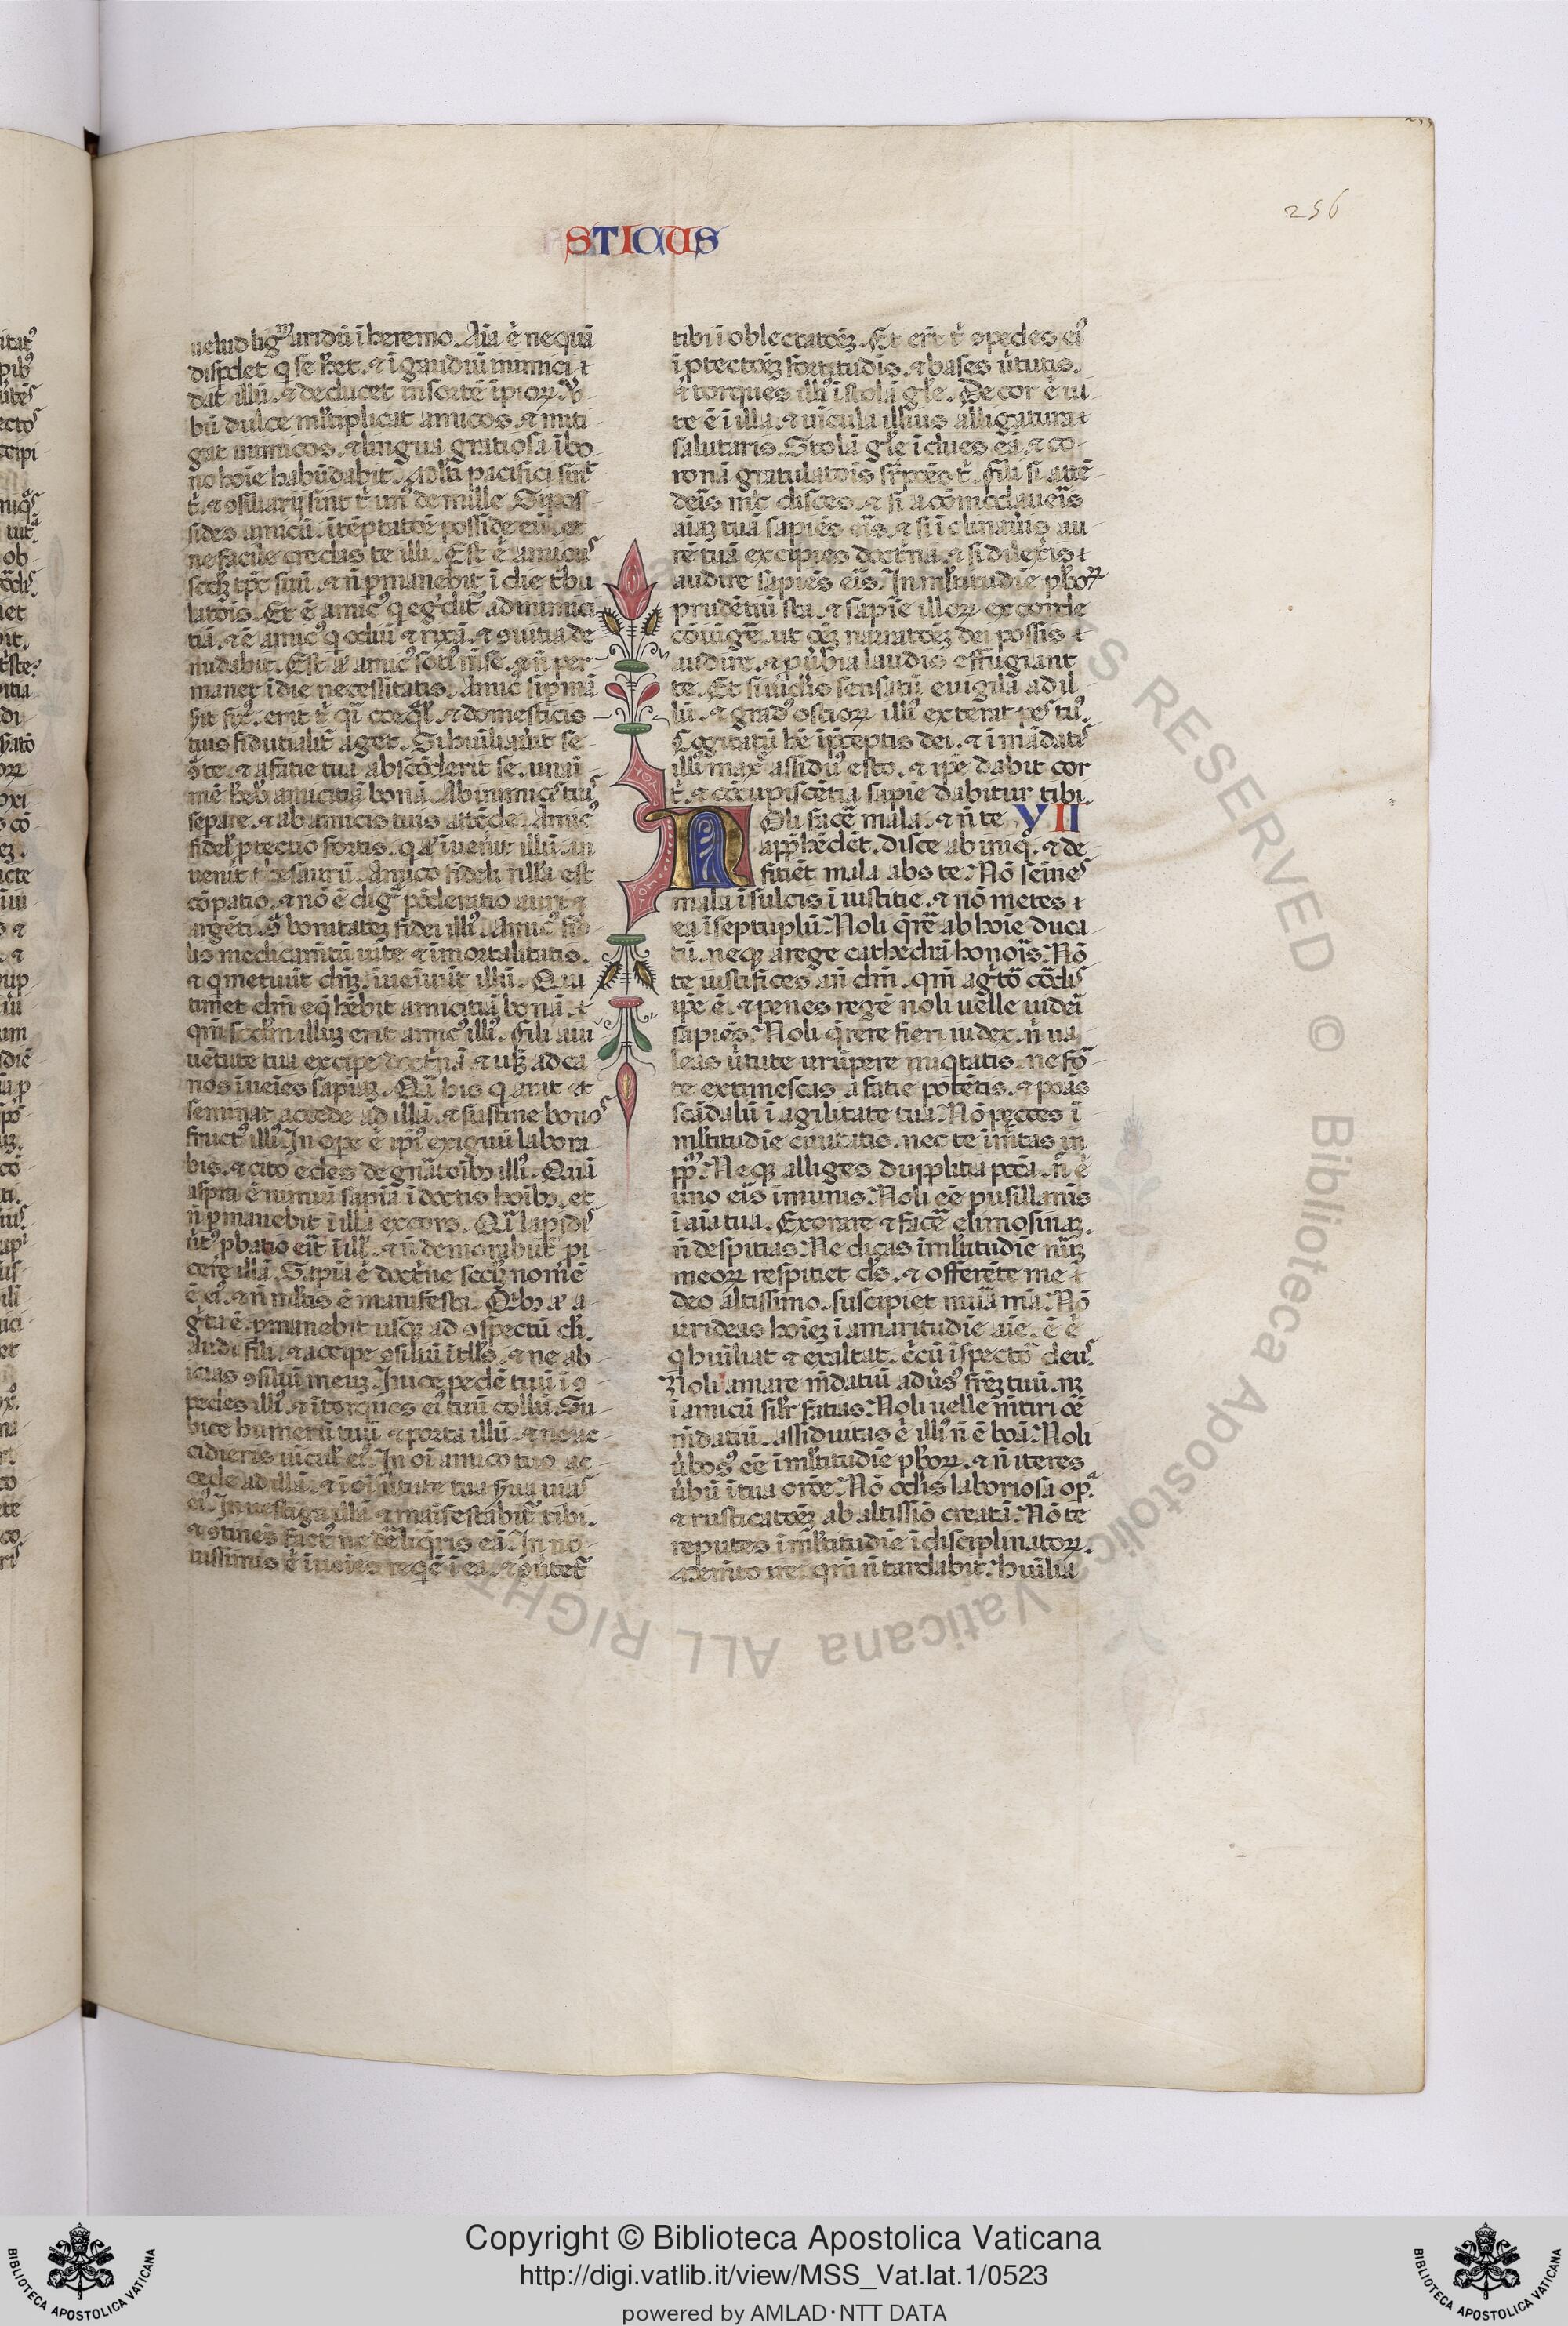 256
STICUS
uelud lignū aridū ī heremo. Aīa ē nequā
disp̄det q̄ se h̄et. ⁊ ī gaudiū inimici ⁊
dat illū. ⁊ deducet in sortē īpioꝝ. V̾-
bū dulce ml̄tiplicat amicos. ⁊ miti-
gat inimicos. ⁊ lingua gratiosa ī bo
no hoīe habūdabit. Ml̄ti pacifici sint
t̄. ⁊ ꝯsiliarij sint t̄ unꝰ de mille. Si pos-
sides amicū. ī tēptatōe posside eū. et
ne facile credas te illi. Est ē amicus
scd̄ꝫ tp̄s suū. ⁊ n̄ p̄manebit ī die tribu
latōis. Et ē amicꝰ q̄ egͥdit̄ ad inimici
tiā. ⁊ ē amicꝰ q̄ odiū ⁊ rixā. ⁊ ꝯuitia de
nudabit. Est aͨ amicꝰ sotiꝰ mēse. ⁊ n̄ per
manet ī die necessitatis. Amicꝰ si p̄mā
sit fixꝰ. erit t̄ qͥ coeq̄l̄. ⁊ domesticis
tuis fidutialit̄ aget. Si huīliauit se-
ꝯ te. ⁊ a fatie tua abscōderit se. unāi
mē h̄ebis amicitiā bonā. Ab inimicis tuis
separe. ⁊ ab amicis tuis attēde. Amicꝰ
fidel̄ ptectio fortis. q̄ aͨ īuenit illū. in
uenit thesaurū. Amico fideli nlla est
cōpatio. ⁊ nō ē digͣ pōderatio auri ⁊
argēti. ꝯͣ bonitateꝫ fidei illiꝰ. Amicꝰ fide
lis medicam̄tū uite ⁊ īmortalitatis.
⁊ q̄ metuūt dm̄. īuenient illū. Qui
timet dm̄ eq̄ h̄ebit amicitiā bonā. ⁊
qm̄ scd̄m illuꝫ erit amicꝰ illiꝰ. Fili a iu
uētute tua excipe doctͥnā. ⁊ usqꝫ ad ca
nos īuenies sapiāꝫ. Quͣ his q̄ arat et
seminat accede ad illā. ⁊ sustine bonos
fructꝰ illiꝰ. In ope ē ipiꝰ exiguū labora
bis. ⁊ cito edes de gn̄atōibꝫ illiꝰ. Quā
aspera ē nimiū sapiā īdoctis hoībꝫ. et
n̄ p̄manebit ī illa excors. Qͣ lapidis
ūtꝰ p̄batio erit ī ill̄. ⁊ n̄ demorabūt̄ pi-
cere illā. Sapiā ē doctͥne scd̄ꝫ nomē
ē eiꝰ. ⁊ n̄ ml̄tis ē manifesta. Qͥbꝫ aͨ a-
gͥta ē. p̄manebit usqꝫ ad ꝯspectū di.
Audi fili. ⁊ accipe ꝯsiliū ītll̄s. ⁊ ne ab-
icias ꝯsiliū meuꝫ. Inice pedē tuū ī ꝯ-
pedes illiꝰ. ⁊ ī torques eiꝰ tuū collū. Su-
bice humerū tuū. ⁊ porta illā. ⁊ ne ac-
cidieris uīcul̄ eiꝰ. In oī animo tuo ac-
cede ad illā. ⁊ ī oī ūtute tua ẜua uias
eiꝰ. Inuestiga illā. ⁊ maīfestabit̄ tibi.
⁊ ꝯtinēs factꝰ ne dēliq̄ris eā. In no-
uissimis ē īuenies req̄ē ī ea. ⁊ ꝯūtet̄
tibi ī oblectatōeꝫ. Et eŕt t̄ ꝯpedes eiꝰ
ī ptectōeꝫ fortitudīs. ⁊ bases ūtutis.
⁊ torques illiꝰ ī stolā gl̄e. Decor ē ui-
te ē ī illa. ⁊ uīcula illius alligatura ⁊
salutaris. Stolā gl̄e īdues eā. ⁊ co-
ronā gratulatōis sr̄pōes t̄. Fili si attē-
deīs m̄ disces. ⁊ si acōmodaueīs
aīaꝫ tuā sapiēs eīs. ⁊ si īclinaūis au-
rē tuā excipies doctͥnā. ⁊ si dilexīs ⁊
audire sapiēs eīs. In ml̄titudīe pb̄oꝝ
prudētiū sta. ⁊ sapīe illoꝝ ex corde
cōiūgē. ut oēꝫ narratōeꝫ dei possis ⁊
audire. ⁊ p̄ūbia laudis effugiant
te. Et si uid̾is sensatū euigilā ad il-
lū. ⁊ gradꝰ ostioꝝ illiꝰ exterat pes tuꝰ.
Cogitatū h̄e ī p̄ceptis dei. ⁊ ī mādatis
illiꝰ maxͤ assiduꝰ esto. ⁊ ip̄e dabit cor
t̄. ⁊ cōcupiscētia sapīe dabitur tibi.
Noli facē mala. ⁊ n̄ te VII
app̄hēdēt. disce ab iniq̄. ⁊ de-
fitiēt mala abs te. Nō seīes
mala ī sulcis īiustitie. ⁊ nō metes ⁊
ea ī septuplū. Noli q̄rē ab hoīe duca
tū. neqꝫ a rege cathedrā honoīs. Nō
te iustifices an̄ dm̄. qm̄ agͥtō cōdis
ip̄e ē. ⁊ penes regē noli uelle uideī
sapiēs. Noli q̄rere fieri iudex. n̄ ua-
leas ūtute irrūpere iniqͥtatis. ne fo-
te extimescas a fatie potētis. ⁊ poās
scādalū ī agilitate tua. Nō pecces ī
ml̄titudīe ciuitatis. nec te īmitas in
pplͫ. Neqꝫ alliges dupplitia pctā. n̄ ē
ī uno eīs īmunis. Noli eē pusillanīs
ī aīa tua. Exorare ⁊ facē elimosinaꝫ.
n̄ despitias. Ne dicas ī ml̄titudīe mūꝫ
meoꝝ respitiet ds̄. ⁊ offerēte me ⁊
deo altissimo. suscipiet mūa mā. Nō
irrideas hoīeꝫ ī amaritudīe aīe. ē ē
q̄ huīliat ⁊ exaltat. c̄cū īspectō deus.
Noli amare m̄datiū aduꝰ fr̄eꝫ tuū. nꝫ
ī amicū sil̄r fatias. Noli uelle m̄tiri oē
m̄datiū. assiduitas ē illiꝰ n̄ ē bōa. Noli
ūbosꝰ eē ī ml̄titudīe pb̄oꝝ. ⁊ n̄ iteres
ūbū ī tua orōe. Nō odīs laboriosa opͣ.
⁊ rusticatōeꝫ ab altissīo creatā. Nō te
reputes ī ml̄titudīe īdisciplinatoꝝ.
Memto ire. qm̄ n̄ tardabit. Huīlia
© Biblioteca Apostolica Vaticana ALL RIGHTS RESERVED
Copyright © Biblioteca Apostolica Vaticana
http://digi.vatlib.it/view/MSS_Vat.lat.1/0523
powered by AMLAD·NTT DATA
BIBLIOTECA APOSTOLICA VATICANA
BIBLIOTECA APOSTOLICA VATICANA